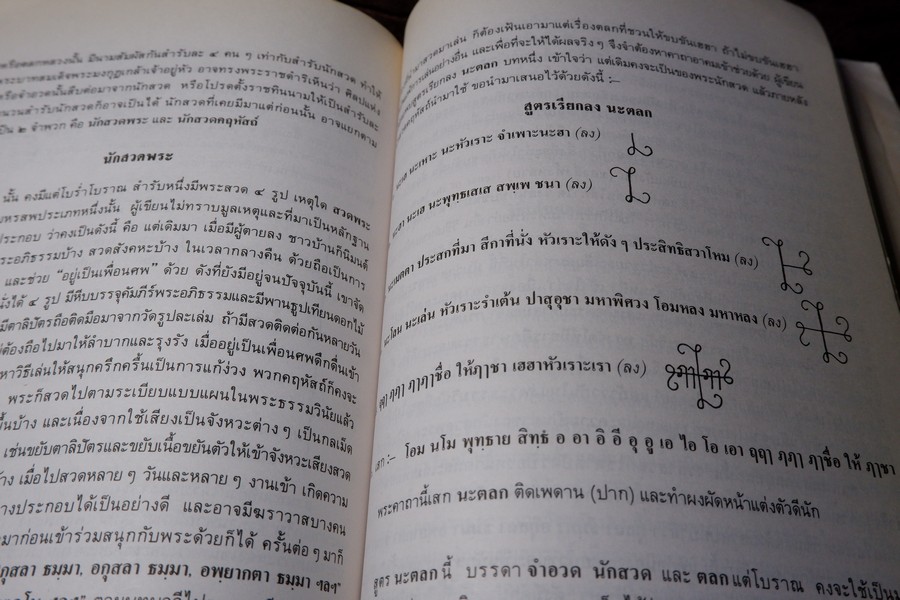 หรือตลกหลวงนั้น มีนามสัมผัสกันสำรับละ ๔ คน ๆ เท่ากับสำรับนักสวด ทำให้
พระบาทสมเด็จพระมงกุฎเกล้าเจ้าอยู่หัว อาจทรงพระราชดำริเห็นว่า ศิลปแห่ง
หรือจำอวดนั้นสืบต่อมาจากนักสวด หรือโปรดตั้งราชทินนามให้เป็นสำรับละ
นักสวดก็อาจเป็นได้ นักสวดที่เคยมีมาแต่ก่อนนั้น อาจแยกตาม
เป็น ๒ จำพวก คือ นักสวดพระ และ นักสวดคฤหัสถ์
นักสวดพระ
นั้น คงมีแต่โบร่ำโบราณ สำรับหนึ่งมีพระสวด ๔ รูป เหตุใด สวดพระ
มหรสพประเภทหนึ่งนั้น ผู้เขียนไม่ทราบมูลเหตุและที่มาเป็นหลักฐาน
ประกอบ ว่าคงเป็นดังนี้ คือ แต่เดิมมา เมื่อมีผู้ตายลง ชาวบ้านก็นิมนต์
พระอภิธรรมบ้าง สวดสังคหะบ้าง ในเวลากลางคืน ด้วยถือเป็นการ
และช่วย “อยู่เป็นเพื่อนศพ” ด้วย ดังที่ยังมีอยู่จนปัจจุบันนี้ เขาจัด
นั่งได้ ๔ รูป มีหีบบรรจุคัมภีร์พระอภิธรรมและมีพานธูปเทียนดอกไม้
มีตาลิปัตรถือติดมือมาจากวัดรูปละเล่ม ถ้ามีสวดติดต่อกันหลายวัน
ต้องถือไปมาให้ลำบากและรุงรัง เมื่ออยู่เป็นเพื่อนศพดึกดื่นเข้า
หาวิธีเล่นให้สนุกครึกครื้นเป็นการแก้ง่วง พวกคฤหัสถ์ก็คงจะ
พระก็สวดไปตามระเบียบแบบแผนในพระธรรมวินัยแล้ว
ขึ้นบ้าง และเนื่องจากใช้เสียงเป็นจังหวะต่าง ๆ เป็นกลเม็ด
เช่นขยับตาลิปัตรและขยับเนื้อขยับตัวให้เข้าจังหวะเสียงสวด
ข้าง เมื่อไปสวดหลาย ๆ วันและหลาย ๆ งานเข้า เกิดความ
างประกอบได้เป็นอย่างดี และอาจมีฆราวาสบางคน
มาก่อนเข้าร่วมสนุกกับพระด้วยก็ได้ ครั้นต่อ ๆ มาก็
กุสลา ธมฺมา, อกุสลา ธมฺมา, อพฺยากตา ธมฺมา ฯลฯ”
มาสวดมาเล่น ก็ต้องเฟ้นเอามาแต่เรื่องตลกที่ชวนให้ขบขันเฮฮา ถ้าไม่ขบขันเฮฮา
การเล่นอย่างอื่น และเพื่อที่จะให้ได้ผลจริง ๆ จึงจำต้องหาคาถาอาคมเข้าช่วยด้วย ผู้เขียน
สูตรเรียกลง นะตลก บทหนึ่ง เข้าใจว่า แต่เดิมคงจะเป็นของพระนักสวด แล้วภายหลัง
คฤหัสถ์นำมาใช้ ขอนำมาเสนอไว้ด้วยดังนี้ :–
สูตรเรียกลง นะตลก
นะเพาะ นะหัวเราะ จำเพาะนะฮา (ลง)
นะฮา นะเฮ นะพุทธเสเส สพฺเพ ชนา (ลง)
ประสกที่มา สีกาที่นั่ง หัวเราะให้ดัง ๆ ประสิทธิสวาโหม (ลง)
นะโลน นะเล่น หัวเราะรำเต้น ปาสุอุชา มหาพิศวง โอมหลง มหาหลง (ลง)
ฤฤๅ ฦๅฦๅชื่อ ให้ฦๅชา เฮฮาหัวเราะเรา (ลง)
เสก :– โอม นโม พุทฺธาย สิทฺธํ อ อา อิ อี อุ อู เอ ไอ โอ เอา ฤฤๅ ฦฦๅ ฦๅชื่อ ให้ ฦๅชา
พระคาถานี้เสก นะตลก ติดเพดาน (ปาก) และทำผงผัดหน้าแต่งตัวดีนัก
สูตร นะตลก นี้ บรรดา จำอวด นักสวด และ ตลก แต่โบราณ คงจะใช้เป็น